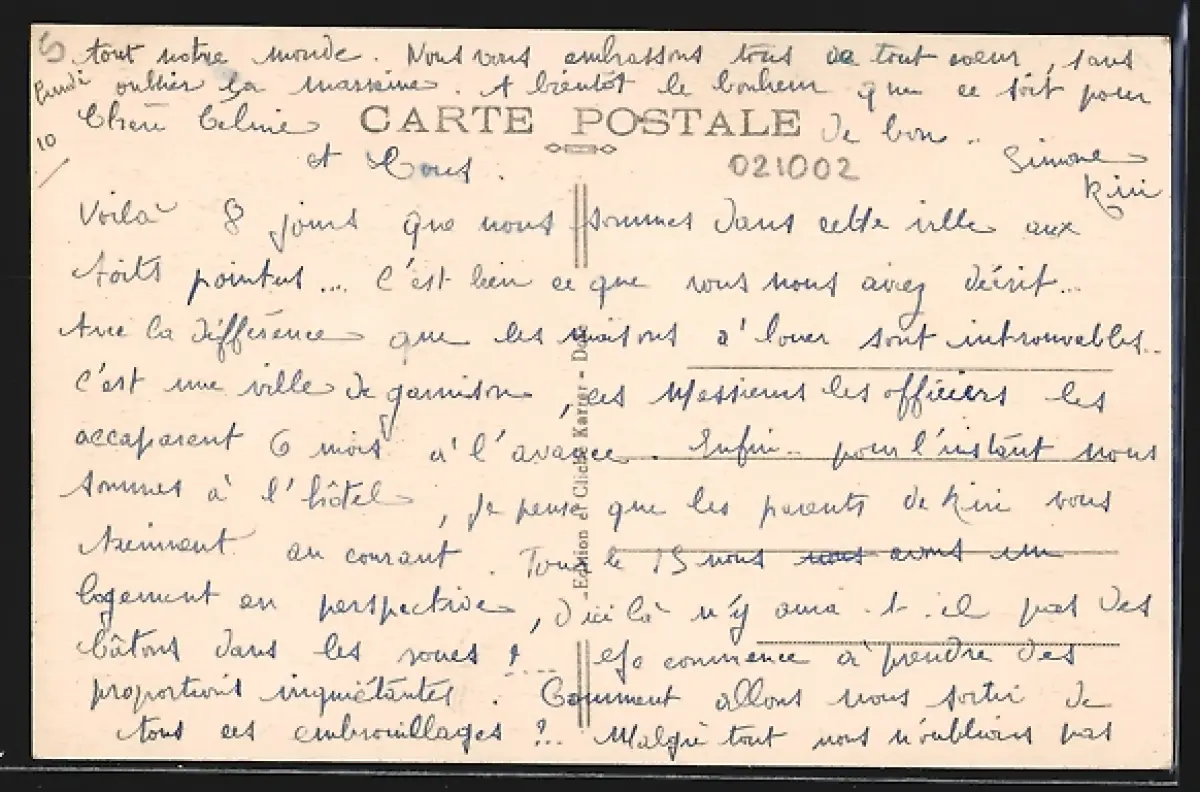 tout notre monde. Nous vous embrassons tous de tout coeur, sans
oublier la marraine. A bientôt le bonheur que ce soit pour
Lundi
10
Chère Céline
CARTE POSTALE
de bon ..
et Tous.
021002
Simone
Kiki
Voilà 8 jours que nous sommes dans cette ville aux
toits pointus... C'est bien ce que vous nous aviez décrit...
Avec la différence que les maisons à louer sont introuvables..
C'est une ville de garnison, ces Messieurs les officiers les
accaparent 6 mois à l'avance. Enfin.. pour l'instant nous
sommes à l'hôtel, je pense que les parents de Kiki vous
tiennent au courant. Pour le 15 nous nous avons un
logement en perspective, d'ici là n'y aura-t-il pas des
bâtons dans les roues ?... Ça commence à prendre des
proportions inquiétantes. Comment allons nous sortir de
tous ces embrouillages ?.. Malgré tout nous n'oublions pas
Edition et Cliché Karrer -